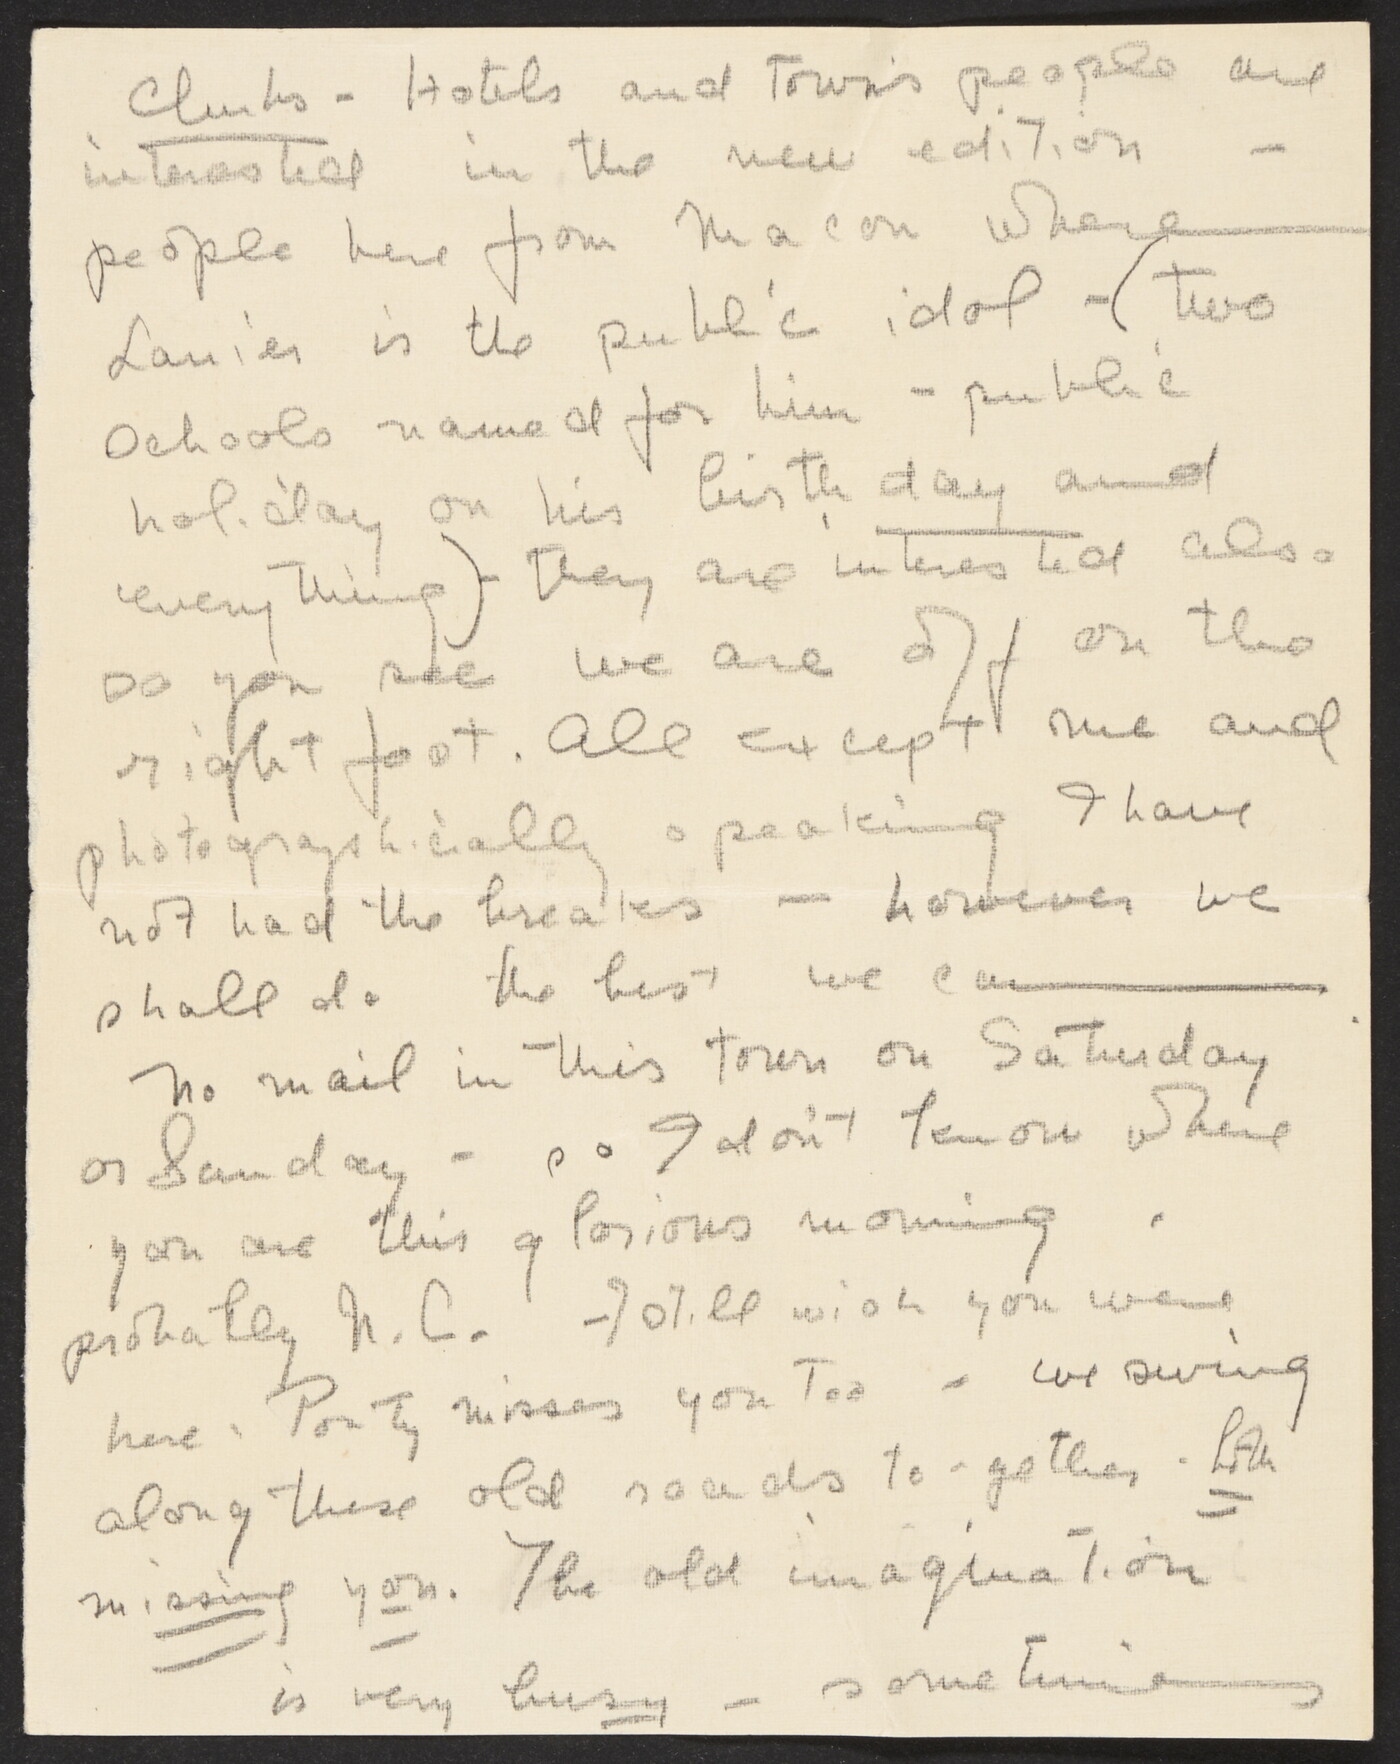 Clubs - Hotels and Towns people are
interested in the new edition -
people here from Macon where
Lanier is the public idol - (two
schools named for him - public
holiday on his birthday and
everything) - they are interested also
so you see we are off on the
right foot. All except me and
photographically speaking I have
not had the breaks - however we
shall do the best we can
No mail in this town on Saturday
or Sunday - so I don't know where
you are this glorious morning.
probably N.C. - I still wish you were
here. Ponty misses you too - we swing
along these old roads to-gether - both
missing you. The old imagination
is very busy - sometimes